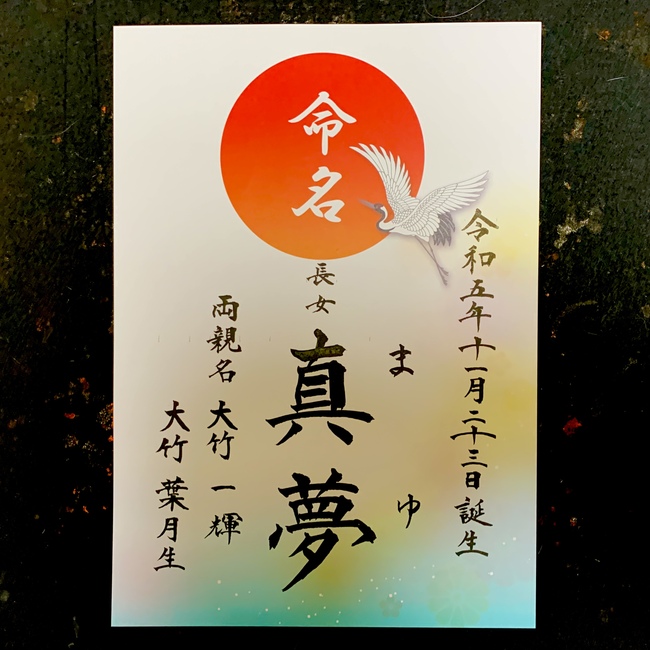 命名
令和五年十一月二十三日誕生
長女
真夢
まゆ
両親名 大竹 一輝
大竹 葉月生